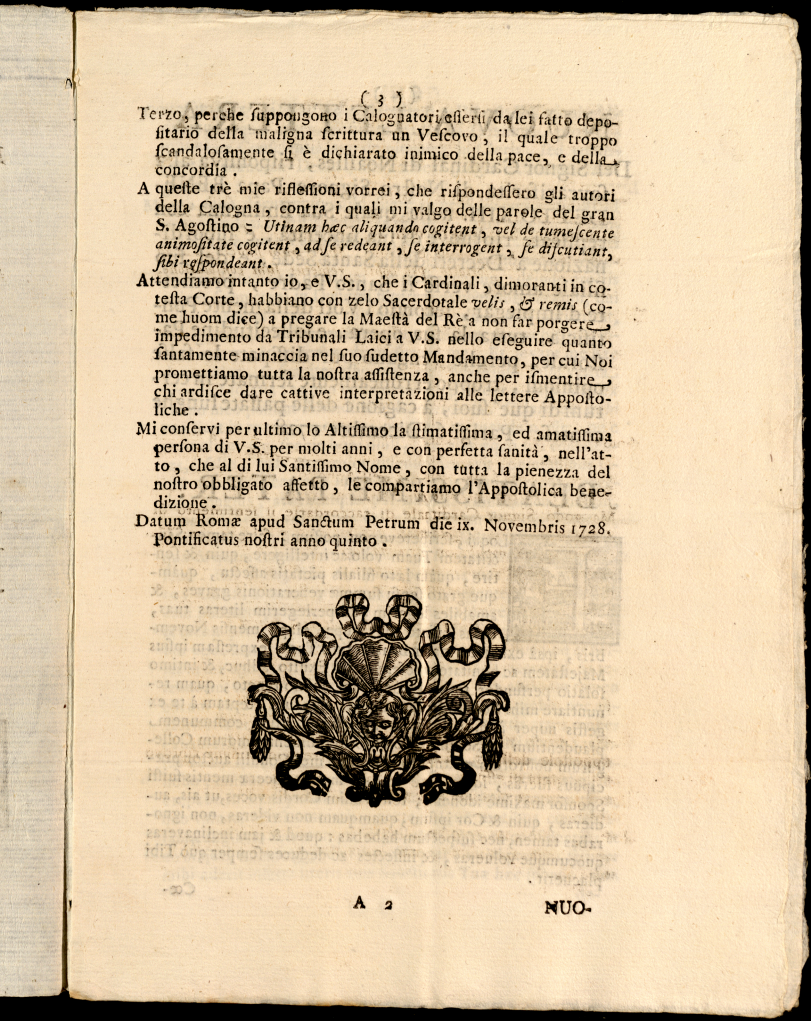 ( 3 )
Terzo, perche ſuppongono i Calognatori eſſerſi da lei fatto depo-
ſitario della maligna ſcrittura un Veſcovo, il quale troppo
ſcandaloſamente ſi è dichiarato inimico della pace, e della
concordia.
A queſte trè mie rifleſſioni vorrei, che riſpondeſſero gli autori
della Calogna, contra i quali mi valgo delle parole del gran
S. Agoſtino : Utinam hæc aliquando cogitent, vel de tumeſcente
animoſitate cogitent, ad ſe redeant, ſe interrogent, ſe diſcutiant,
ſibi reſpondeant.
Attendiamo intanto io, e V.S., che i Cardinali, dimoranti in co-
teſta Corte, habbiano con zelo Sacerdotale velis, & remis (co-
me huom dice) a pregare la Maeſtà del Rè a non far porgere
impedimento da Tribunali Laici a V.S. nello eſeguire quanto
ſantamente minaccia nel ſuo ſudetto Mandamento, per cui Noi
promettiamo tutta la noſtra aſſiſtenza, anche per iſmentire
chi ardiſce dare cattive interpretazioni alle lettere Appoſto-
liche.
Mi conſervi per ultimo lo Altiſſimo la ſtimatiſſima, ed amatiſſima
perſona di V.S. per molti anni, e con perfetta ſanità, nell'at-
to, che al di lui Santiſſimo Nome, con tutta la pienezza del
noſtro obbligato affetto, le compartiamo l'Appoſtolica bene-
dizione.
Datum Romæ apud Sanctum Petrum die ix. Novembris 1728.
Pontificatus noſtri anno quinto.
A 2
NUO-